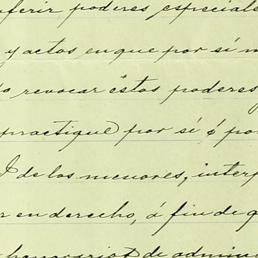 nferir poderes especiale
y actos en que por sí m
o revocar éstos poderes
practique por sí ó po
I de los menores, interp
r en derecho, á fin de q
de admin